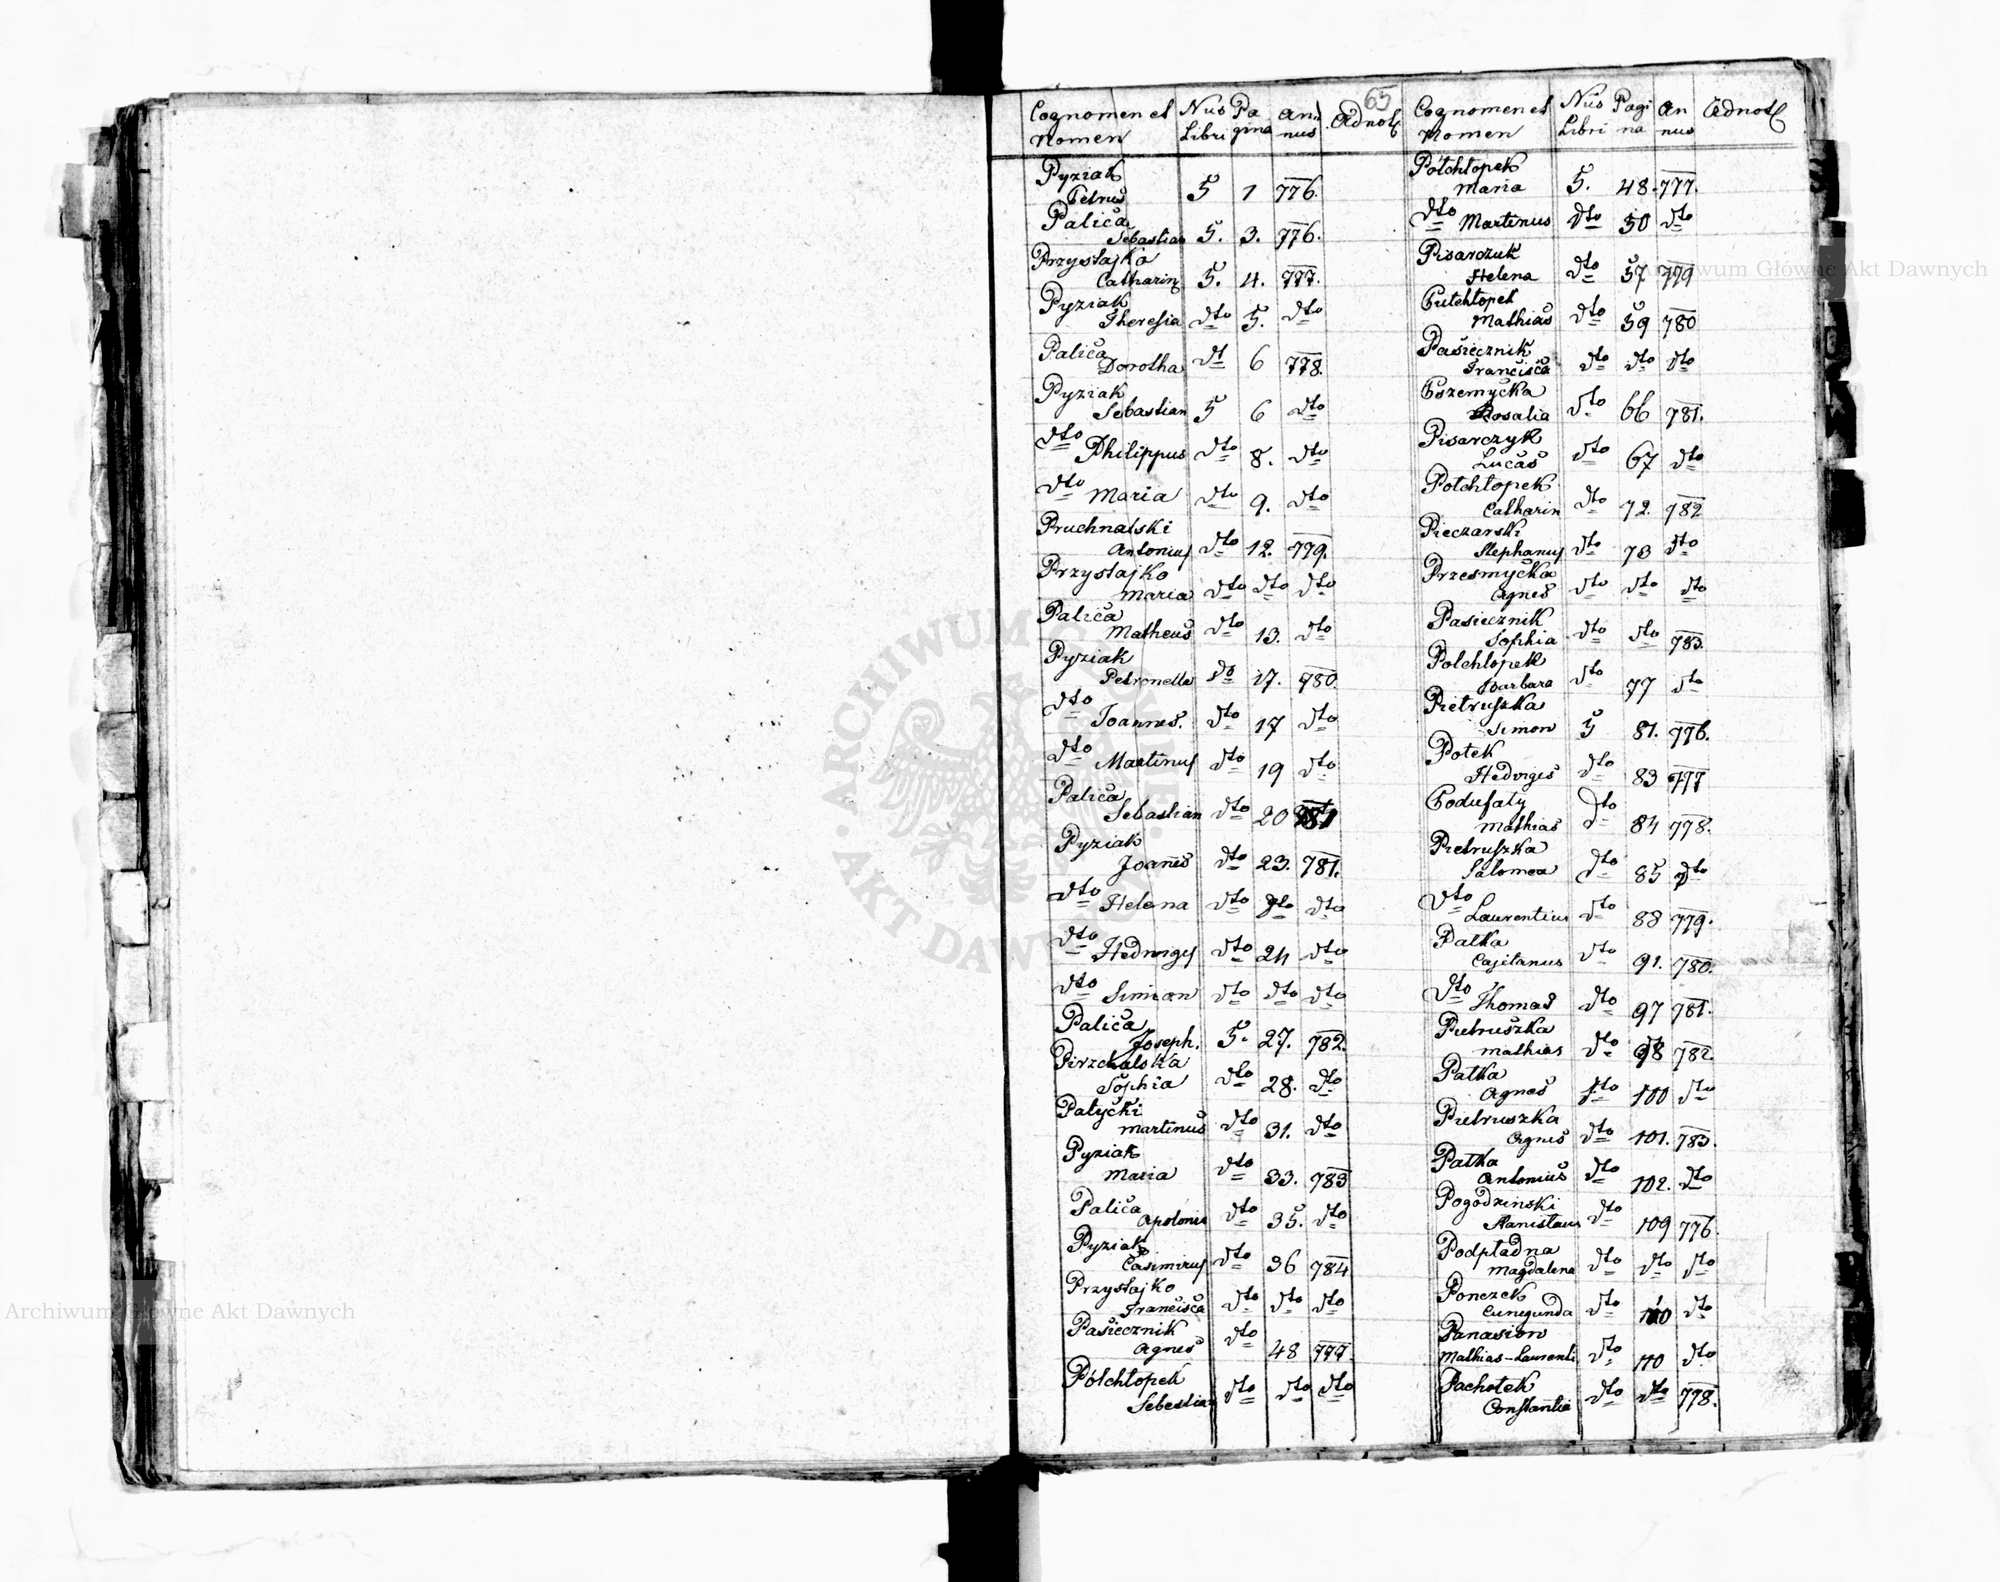 65
Cognomen et Nus Pa An Adnot
Nomen Libri gina nus
Pyziak
Petrus 5 1 776.
Palica
Sebastian 5. 3. 776.
Przystajko
Catharina 5. 4. 777.
Pyziak
Theresia dto 5. dto
Palica
Dorotha dt 6 778.
Pyziak
Sebastian 5 6 dto
dto Philippus dto 8. dto
dto Maria dto 9. dto
Pruchnalski
Antonius dto 12. 779.
Przystajko
Maria dto dto dto
Palica
Matheus dto 13. dto
Pyziak
Petronella do 17. 780.
dto Joannes. dto 17 dto
dto Martinus dto 19 dto
Palica
Sebastian dto 20 781
Pyziak
Joanes dto 23. 781.
dto Helena dto dto dto
dto Hedviges dto 24 dto
dto Simion dto dto dto
Palica
Joseph. 5. 27. 782.
Pirzchalska
Sophia dto 28. dto
Patycki
Martinus dto 31. dto
Pyziak
Maria dto 33. 783
Palica
Apolonia dto 35. dto
Pyziak
Casimirus dto 36 784
Przystajko
Francisca dto dto dto
Pasiecznik
Agnes dto 48 777.
Pólchłopek
Sebestian dto dto dto
Cognomen et Nus Pagi An Adnot
Nomen Libri na nus
Pótchłopek
Maria 5. 48. 777.
dto Martinus dto 50 dto
Pisarczuk
Helena dto 57 779
Putchłopek
Mathias dto 59 780
Pasiecznik
Francisca dto dto dto
Pszemycka
Rosalia dto 66 781.
Pisarczyk
Lucas dto 67 dto
Potchłopek
Catharin dto 72. 782
Pieczarski
Stephanus dto 73 dto
Przesmycka
Agnes dto dto dto
Pasiecznik
Sophia dto dto 783.
Polchłopek
Barbara dto 77 dto
Pietruszka
Simon 5 81. 776.
Potek
Hedviges dto 83 777
Podufaty
Mathias dto 84 778.
Pietruszka
Salomea dto 85 dto
dto Laurentius dto 88 779.
Patka
Cajetanus dto 91. 780.
dto Thomas dto 97 781.
Pietruszka
Mathias dto 98 782.
Patka
Agnes dto 100 dto
Pietruszka
Agnes dto 101. 783.
Patka
Antonius dto 102. dto
Pogodzinski
Stanislaus dto 109 776.
Podpładna
Magdalena dto dto dto
Ponczek
Cunegunda dto 110 dto
Panasion
Mathias-Laurenti dto 110 dto
Pachotek
Constantia dto dto 778.
Archiwum Główne Akt Dawnych
Archiwum Główne Akt Dawnych
ARCHIWUM
AKT DAWNYCH